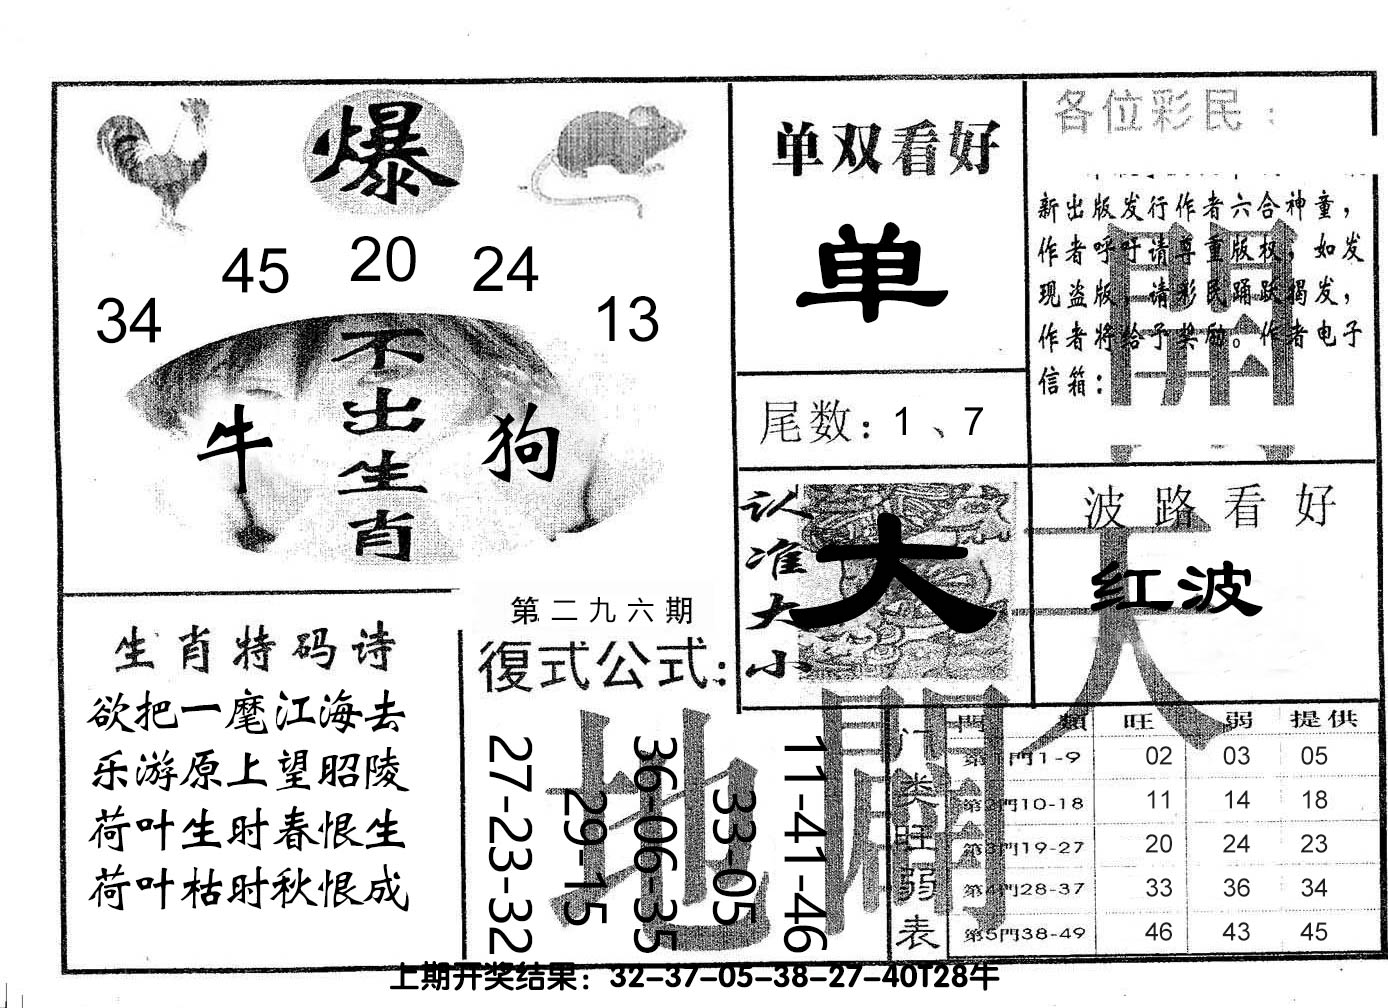 爆
45 20 24
34 13
不出生肖
牛 狗
单双看好
单
尾数：1、7
各位彩民：
新出版发行作者六合神童，
作者呼吁请尊重版权，如发
现盗版，请彩民踊跃揭发，
作者将给予奖励。作者电子
信箱：
開
认准大小
大
波路看好
红波
天
生肖特码诗
欲把一麾江海去
乐游原上望昭陵
荷叶生时春恨生
荷叶枯时秋恨成
第二九六期
復式公式：
27-23-32
29-15
36-06-35
33-05
11-41-46
地
門类旺弱表
門 類 旺 弱 提供
第1門1-9 02 03 05
第2門10-18 11 14 18
第3門19-27 20 24 23
第4門28-37 33 36 34
第5門38-49 46 43 45
上期开奖结果：32-37-05-38-27-40T28牛